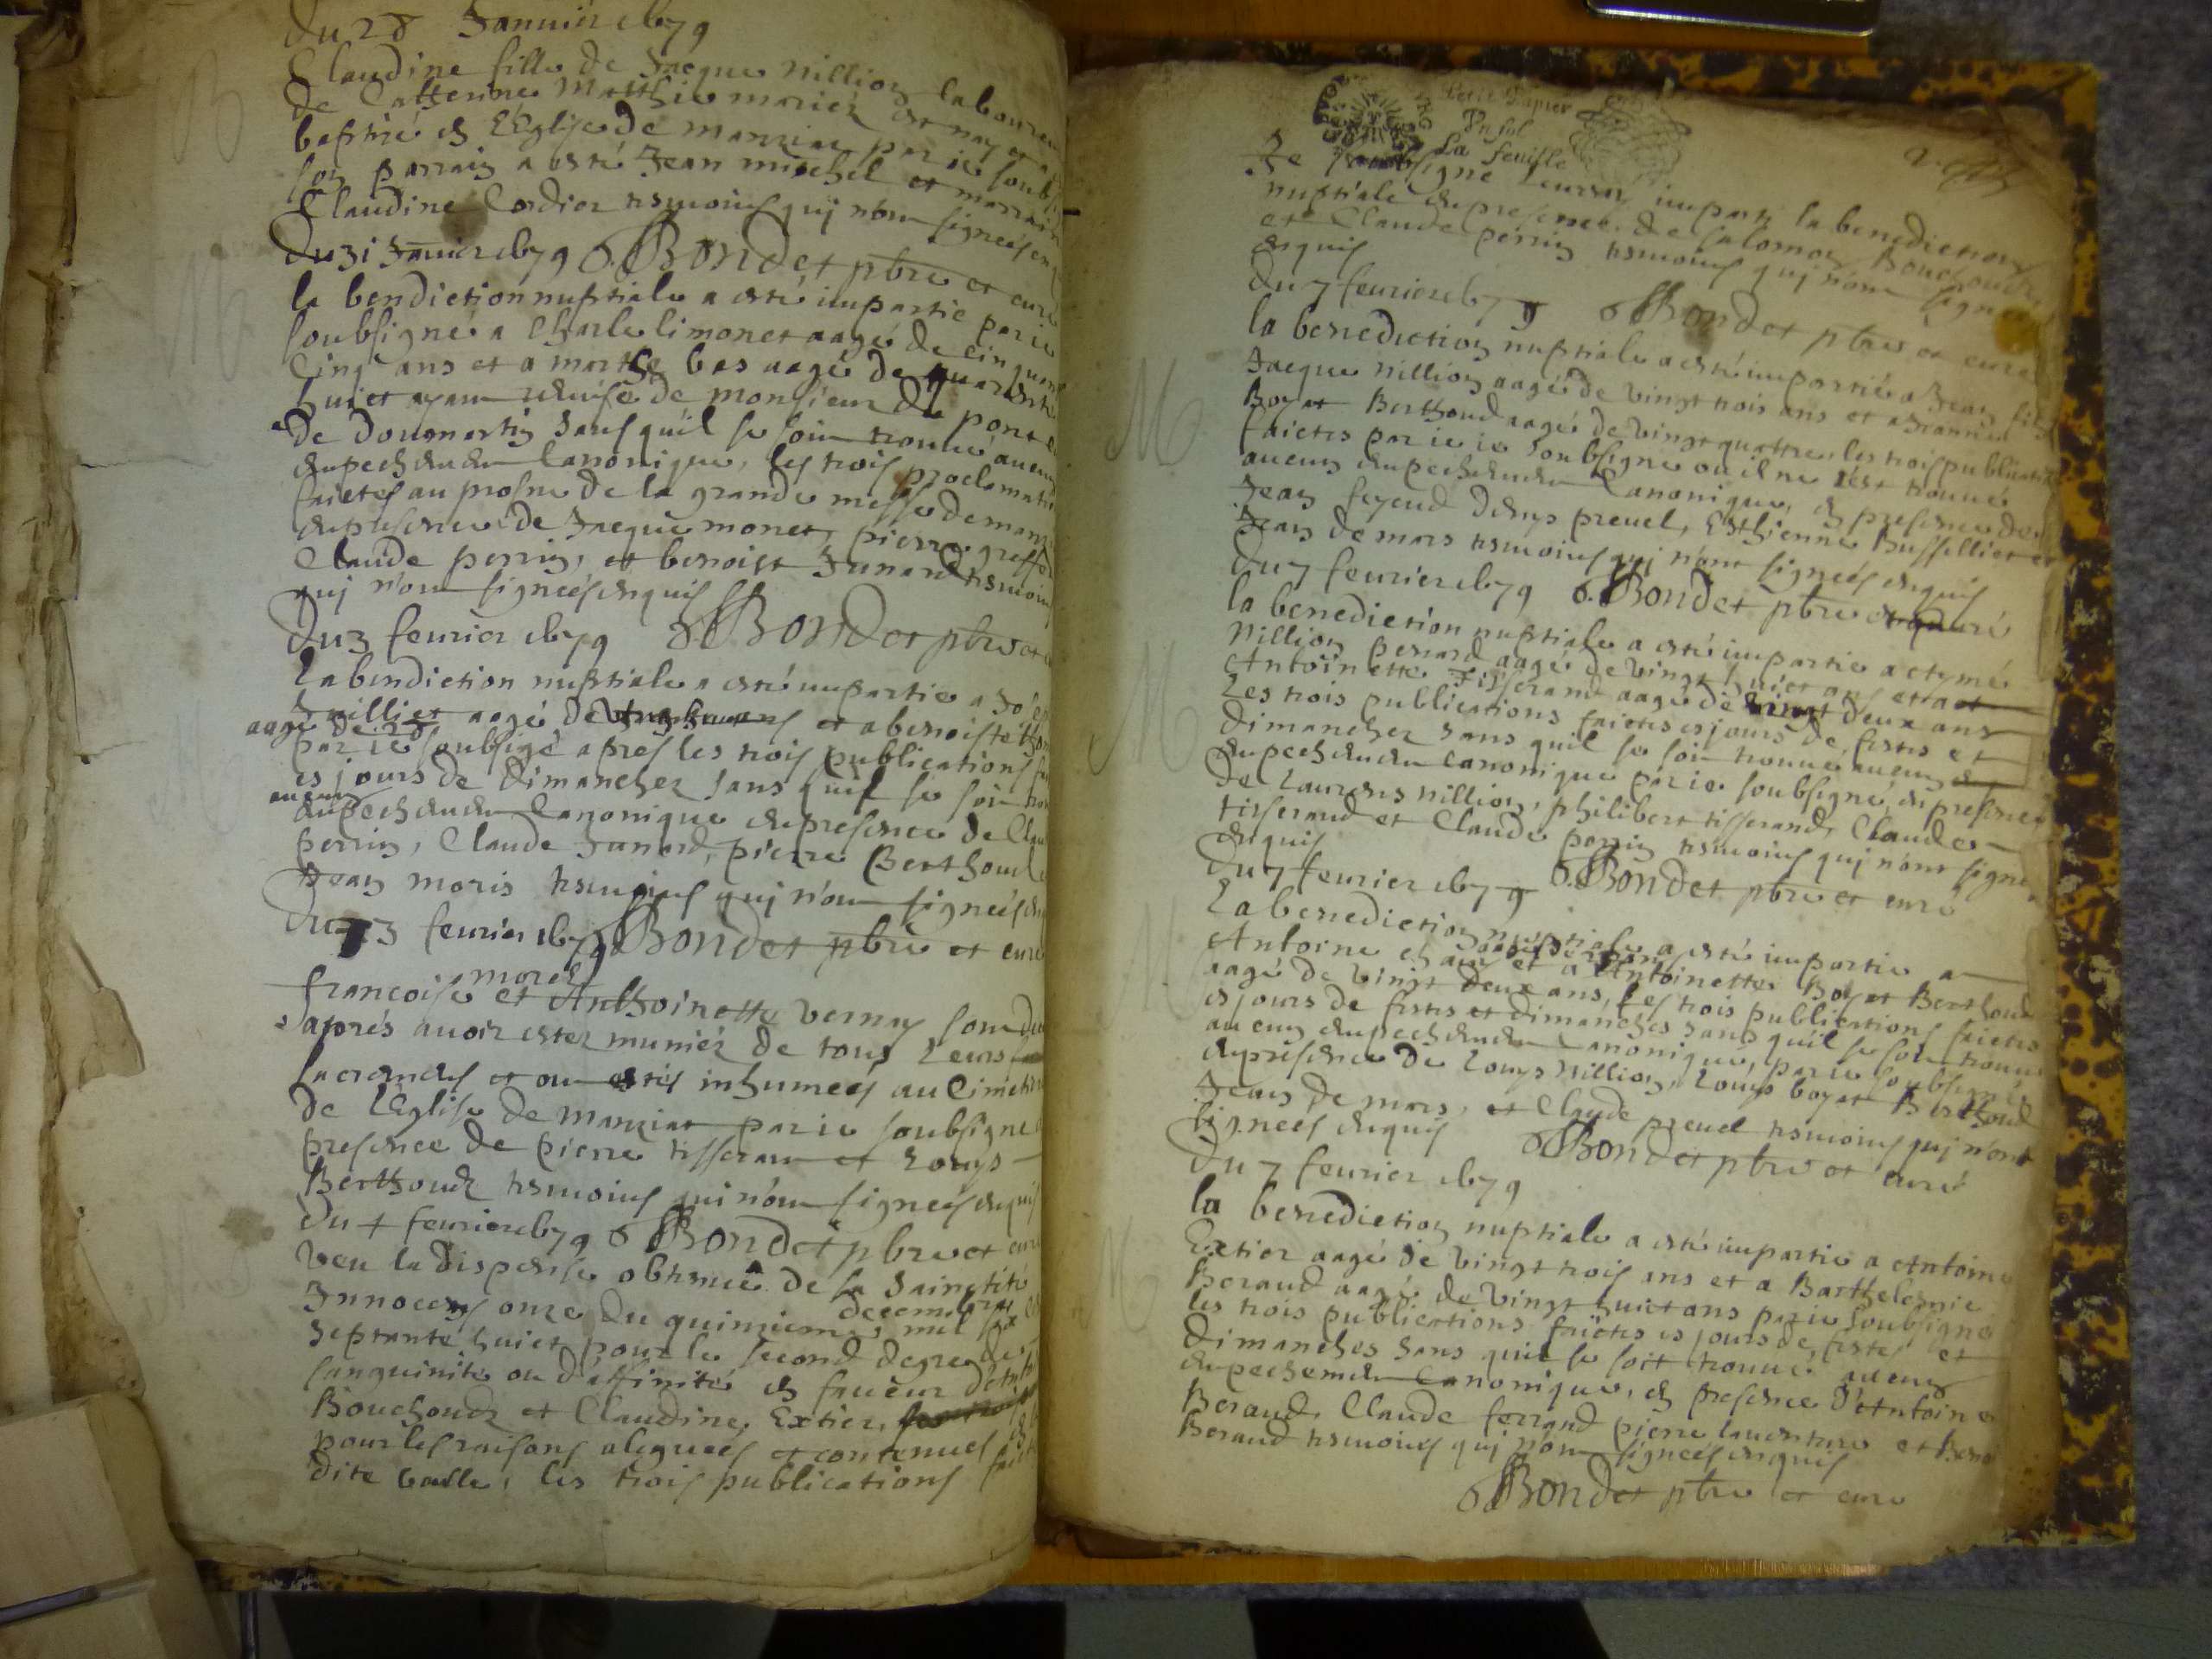 du 28 Januier 1679
Claudine fille de Jacque nillion laboureur
de Catherine Matthie mariez est nay et a
baptisé en l'Eglise de manziat par ie soub
son parrain a esté Jean michel et marraine
Claudine Cordier tesmoins qui n'ont signeés en
du 31 Januier 1679 Bondet pbre et curé
la bendiction nuptiale a esté impartie par ie
soubsigné a Charle limonet aagé de cinquante
Cinq ans et a marthe bas aagé de quarante
huict ayant remise de monsieur du pont
de dommartin sans qu'il se soit trouué aucun
empechement Canonique, les trois proclamations
faictes au prosne de la grande messe de manziat
en presence de Jacque monet, pierre greffet
Claude perrin, et benoist Junard tesmoins
qui n'ont signeés enquis
du 3 feurier 1679 Bondet pbre et
La bendiction nuptiale a esté impartie a Joseph
aagé de et a benoiste
par ie soubsigé apres les trois publications
es jours de dimanchez sans quil se soit trouué
aucun
empechement Canonique en presence de Claude
perrin, Claude Junard, pierre Berthoud
Jean moris tesmoins qui n'ont signeés
du 3 feurier 1679 Bondet pbre et curé
morel
francoise et Anthoinette vernay sont
aprés auoir estez muniéz de tous leurs
sacremens et ont estés inhumeés au Cimetiere
de l'Eglise de manziat par ie soubsigné
presence de pierre tisserant et Louys
Berthoud tesmoins qui n'ont signeés enquis
du 4 feurier 1679 Bondet pbre et curé
veu la dispense obtenue de sa Sainctité
decembre
Innocens onze du quinzieme, mil six
septante huict pour le second degre de
sanguinité ou d'affinité en faueur d'
Bouchoud et Claudine Extier,
pour les raisons alegueés et contenues
dite bulle, les trois publications
Petit Papier
Un sol
La feuille
Je soubsigné Leur ay imparti la benediction
nuptiale en presence de Salomon Bouchoud
et Claude perrin tesmoins qui n'ont signeés
enquis
du 7 feurier 1679 Bondet pbre et curé
la benediction nuptiale a esté impartie a Jean fils
Jacque nillion aagé de vingt trois ans et a
Boyat Berthoud aagé de vingt quattre, les trois publications
faictes par ie soubsigné ou il ne s'est trouué
aucun empechement Canonique, en presence de
Jean feyeud Denys preuel, Esthienne Buffilliet et
Jean de mars tesmoins qui n'ont signeés enquis
du 7 feurier 1679 Bondet pbre et curé
la benediction nuptiale a esté impartie a etymé
nillion penard aagé de vingt huict ans et a
Antoinette Tisserant aagé de vingt deux ans
Les trois publications faictes es jours de festes et
dimanchez sans quil se soit trouué aucun
empechement canonique par ie soubsigné, en presence
de Laurens nillion, philibert tisserand, Claude
tisserand et Claude perrin tesmoins qui n'ont signeés
enquis
du 7 feurier 1679 Bondet pbre et curé
La benediction nuptiale a esté impartie a
Antoine et a Antoinette Boyat Berthoud
aagé de vingt deux ans, les trois publications faictes
es jours de festes et dimanches sans quil se soit trouué
aucun empechement canonique, par ie soubsigné
en presence de Louys nillion, Louys boyat Berthoud
Jean de mars, et Claude preuel tesmoins qui n'ont
signeés enquis Bondet pbre et curé
du 7 feurier 1679
la benediction nuptiale a esté impartie a Antoine
Extier aagé de vingt trois ans et a Barthelemie
Beraud aagé de vingt huict ans par ie soubsigné
les trois publications faictes es jours de festes et
dimanches sans quil se soit trouué aucun
empechement canonique, en presence d'Antoine
Beraud, Claude ferrand pierre
Beraud tesmoins qui n'ont signeés enquis
Bondet pbre et curé